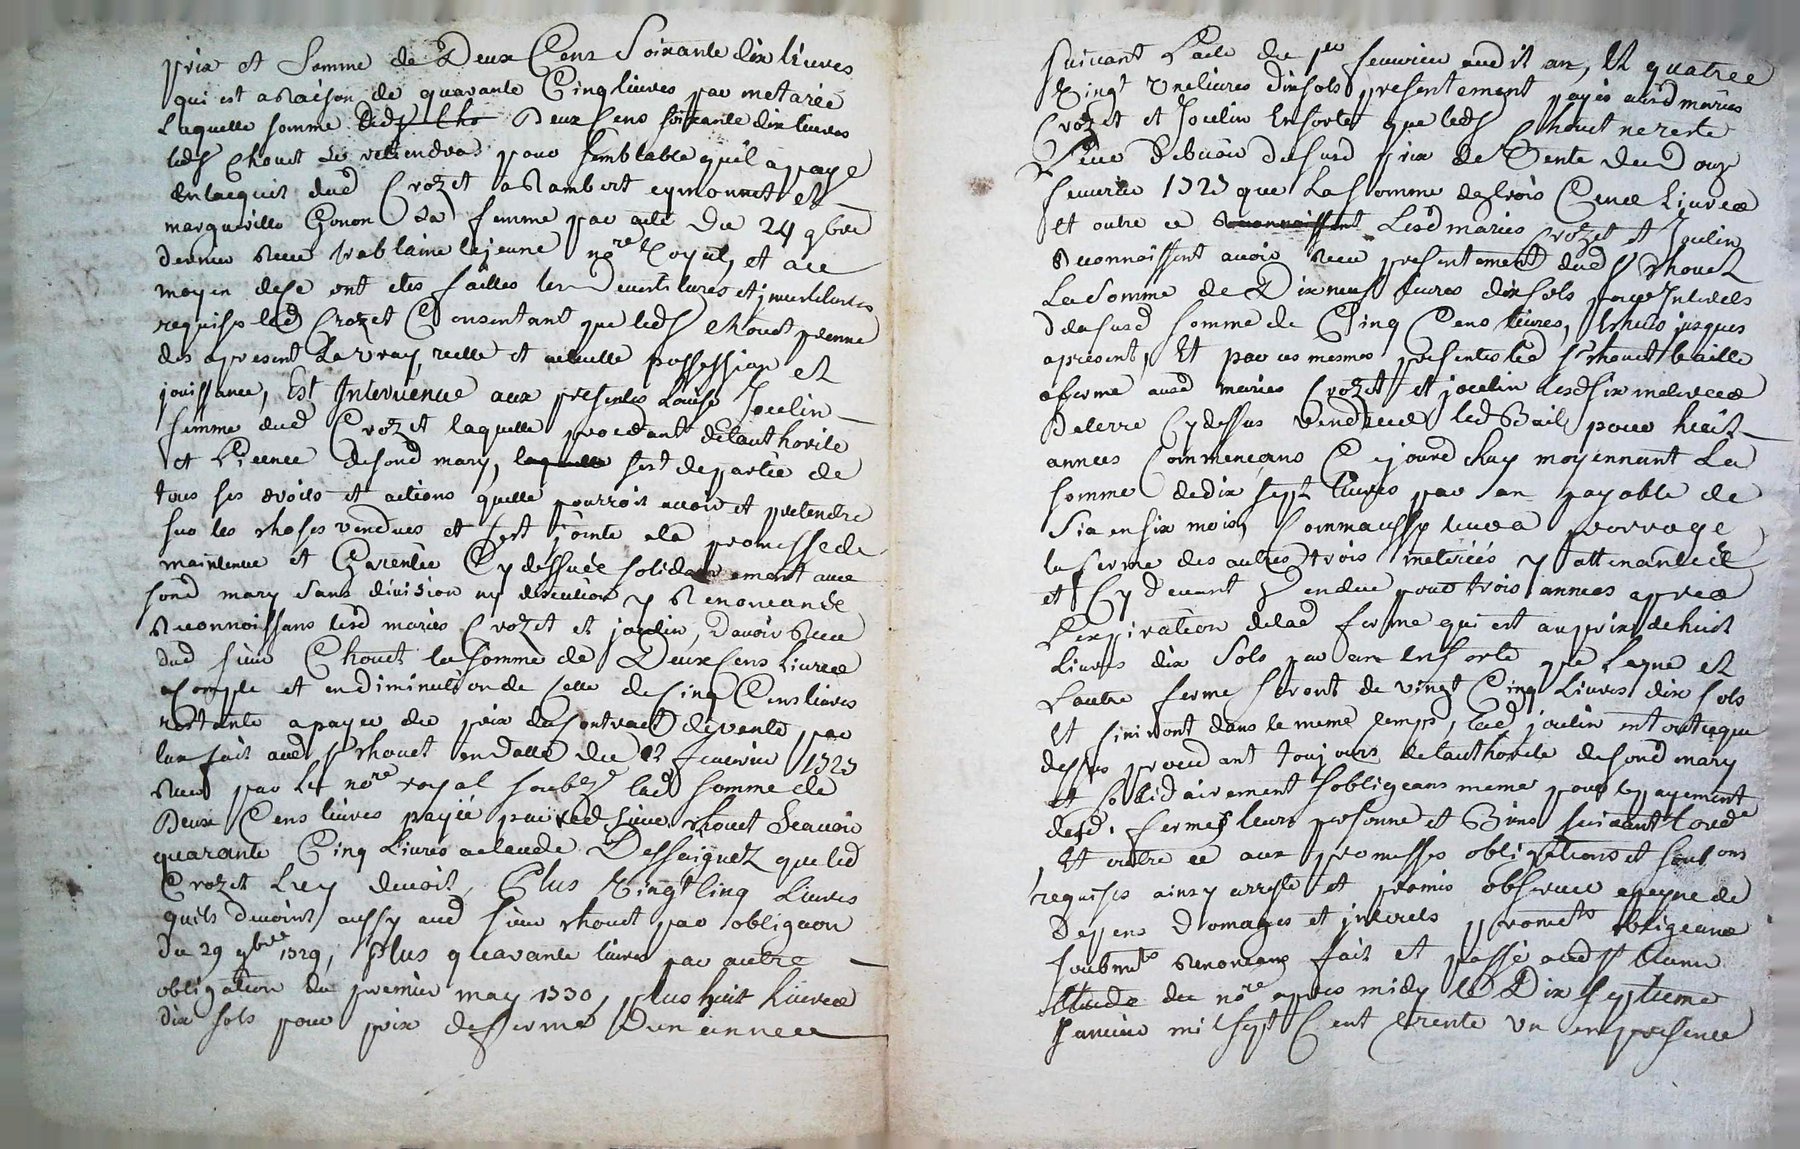 prix et somme de Deux Cens Soixante dix livres
qui est a Raison de quarante Cinq livres par metarée
Laquelle somme Deux Cens soixante dix livres
leds Chouet se retiendra pour semblable qu'il a payé
en lacquit dud Crozet a Rambert eymonnet et
margueritte Gonon Sa femme par acte Du 24 9bre
dernier Receu lejeune nore Royal, et au
moyen dese ont etes faittes les et
requises led Crozet Consentant que leds Chouet prenne
des apresent La vray, reelle et actuelle possession et
jouissance, Est Intervenue aux presentes Jocelin
femme dud Crozet laquelle procedant de lauthorité
et Licence desond mary, laquelle sest departie de
tous ses droits et actions quelle pourroit avoir et pretendre
sur les choses vendues et sest jointe ala promesse de
maintenue et Garentie Cydessus solidairement avec
sond mary sans division ny discution y Renoncande
Reconnoissans lesd mariés Crozet et jocelin, Davoir Receu
dud sieur Chouet la somme de Deux Cens Livres
acompte et en diminution de celle de Cinq Cens livres
restante a payer du prix du Contract de vente, par
lux fait aud sr Chouet en datte du 12 fevrier 1727
Receu par Le nore royal soubzné lad somme de
Deux Cens livres payée par led sieur Chouet Scavoir
quarante Cinq Livres aclaude que led
Crozet Luy devoit, Plus Vingt Cinq Livres
quils devoient aussy aud sieur Chouet par obligaon
du 29 9bre 1729, Plus quarante livres par autre
obligation du premier may 1730, plus huit Livres
dix sols pour prix deferme Dun année
suivant Lacte du per fevrier aud it an, Et quatre
Vingt Une livres dix sols presentement payés ausd mariés
Crozet et Jocelin Ensorte que leds Chouet ne reste
Plus Debiteur dususd prix de Vente dud
fevrier 1727 que La somme de trois Cens Livres
Et outre ce Reconnoissent Lesd mariés Crozet et Jocelin
Reconnoissent avoir Receu presentement dud sr Chouet
La Somme de Dix neuf livres dix sols pour Interets
delasusd somme de Cinq Cens livres, Echus jusques
apresent, Et par ces mesmes presentes led sr Chouet baille
aferme ausd mariés Crozet et jocelin lesd six meterees
De terre Cydessus Vendues led Bail pour huit
années Commençans Cejourd'huy moyennant La
somme de dix sept livres par an payable de
Six en six mois, Comme aussy
la ferme des autres trois meterées y attenantes
et Cy devant Vendue pour trois années apres
L'expiration delad ferme qui est au prix de huit
Livres dix Sols par an Ensorte que Layne et
Lautre ferme seront de vingt Cinq Livres dix sols
Et finiront dans le meme temps, Lad joselin entouteque
dessus procedant toujours delauthorité desond mary
et solidairement sobligeans meme pour le payement
desd. fermes leurs personne et Biens suivant Lorde
Et outre ce aux promesses obligations et
requises ainsy arresté et promis observer apeyne de
Depens Domages et interets promets obligeans
soubmts Renoncans fait et passé aud st
Etude du nore apres midy le Dix septieme
Janvier mil sept Cent trente Un en presence